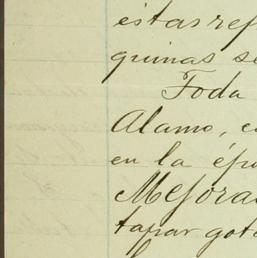 estas ref
quinas se
Toda
Alamo, e
en la épo
Mejora
tapar got